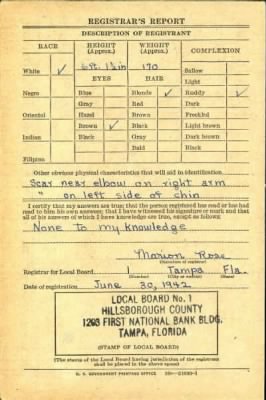 REGISTRAR'S REPORT
DESCRIPTION OF REGISTRANT
RACE HEIGHT (Approx.) WEIGHT (Approx.) COMPLEXION
White ✓ 6ft. 1½in 170 Sallow
EYES HAIR Light
Negro Blue Blonde ✓ Ruddy ✓
Gray Red Dark
Oriental Hazel Brown Freckled
Brown ✓ Black Light brown
Indian Black Gray Dark brown
Bald Black
Filipino
Other obvious physical characteristics that will aid in identification
Scar near elbow on right arm
" on left side of chin
I certify that my answers are true; that the person registered has read or has had
read to him his own answers; that I have witnessed his signature or mark and that
all of his answers of which I have knowledge are true, except as follows:
None to my knowledge
Marion Rose
(Signature of registrar)
Registrar for Local Board 1 Tampa Fla.
(Number) (City or county) (State)
Date of registration June 30, 1942
LOCAL BOARD No. 1
HILLSBOROUGH COUNTY
1203 FIRST NATIONAL BANK BLDG.
TAMPA, FLORIDA
(STAMP OF LOCAL BOARD)
(The stamp of the Local Board having jurisdiction of the registrant
shall be placed in the above space)
U. S. GOVERNMENT PRINTING OFFICE